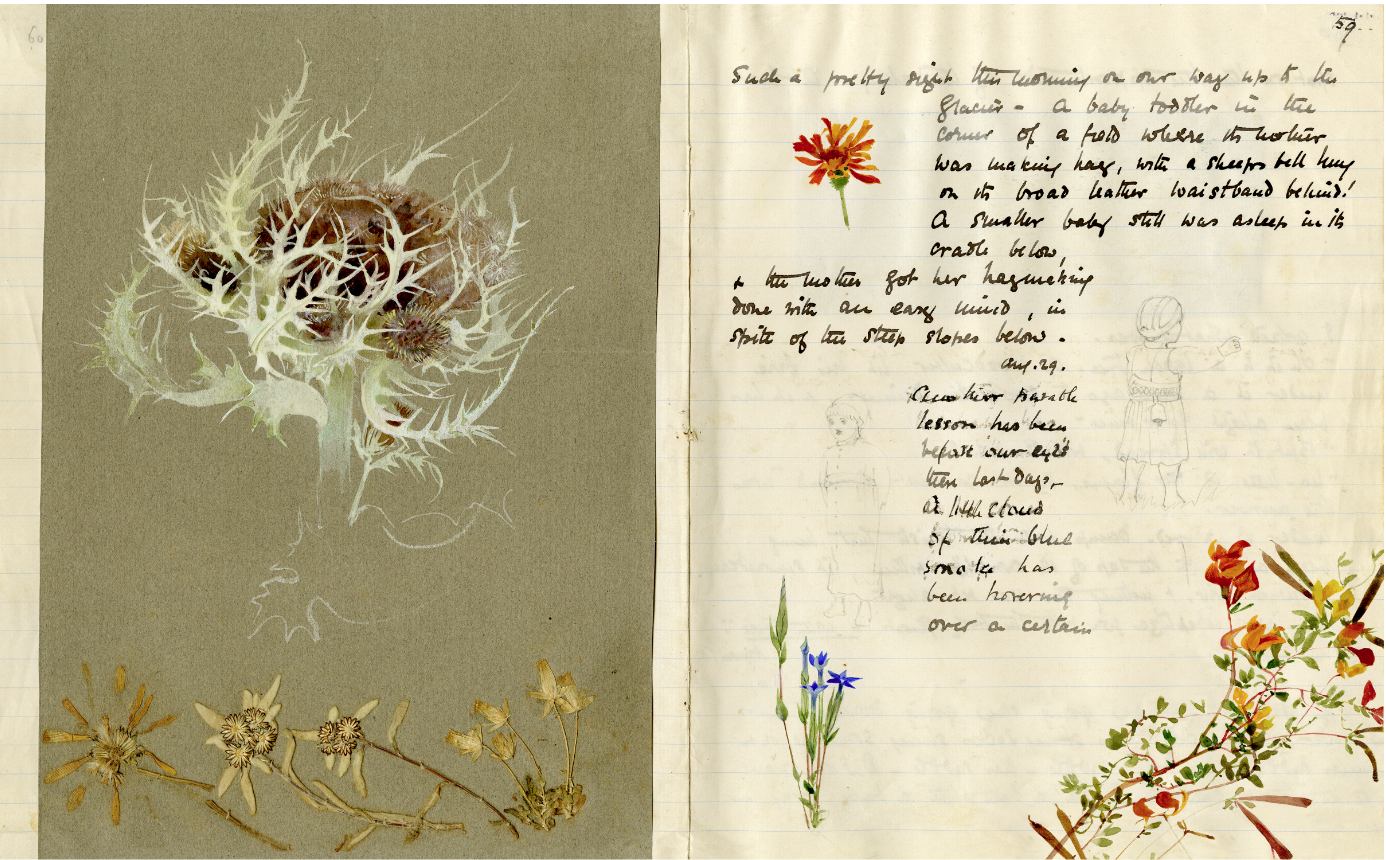 60
59
Such a pretty sight this morning on our way up to the
Glacier - A baby toddler in the
corner of a field where its mother
was making hay, with a sheeps bell hung
on its broad leather waistband behind!
A smaller baby still was asleep in its
cradle below,
& the mother got her haymaking
done with an easy mind, in
spite of the steep slopes below.
Aug. 29.
Another parable
lesson has been
before our eyes
these last days,
a little cloud
of thin blue
smoke has
been hovering
over a certain